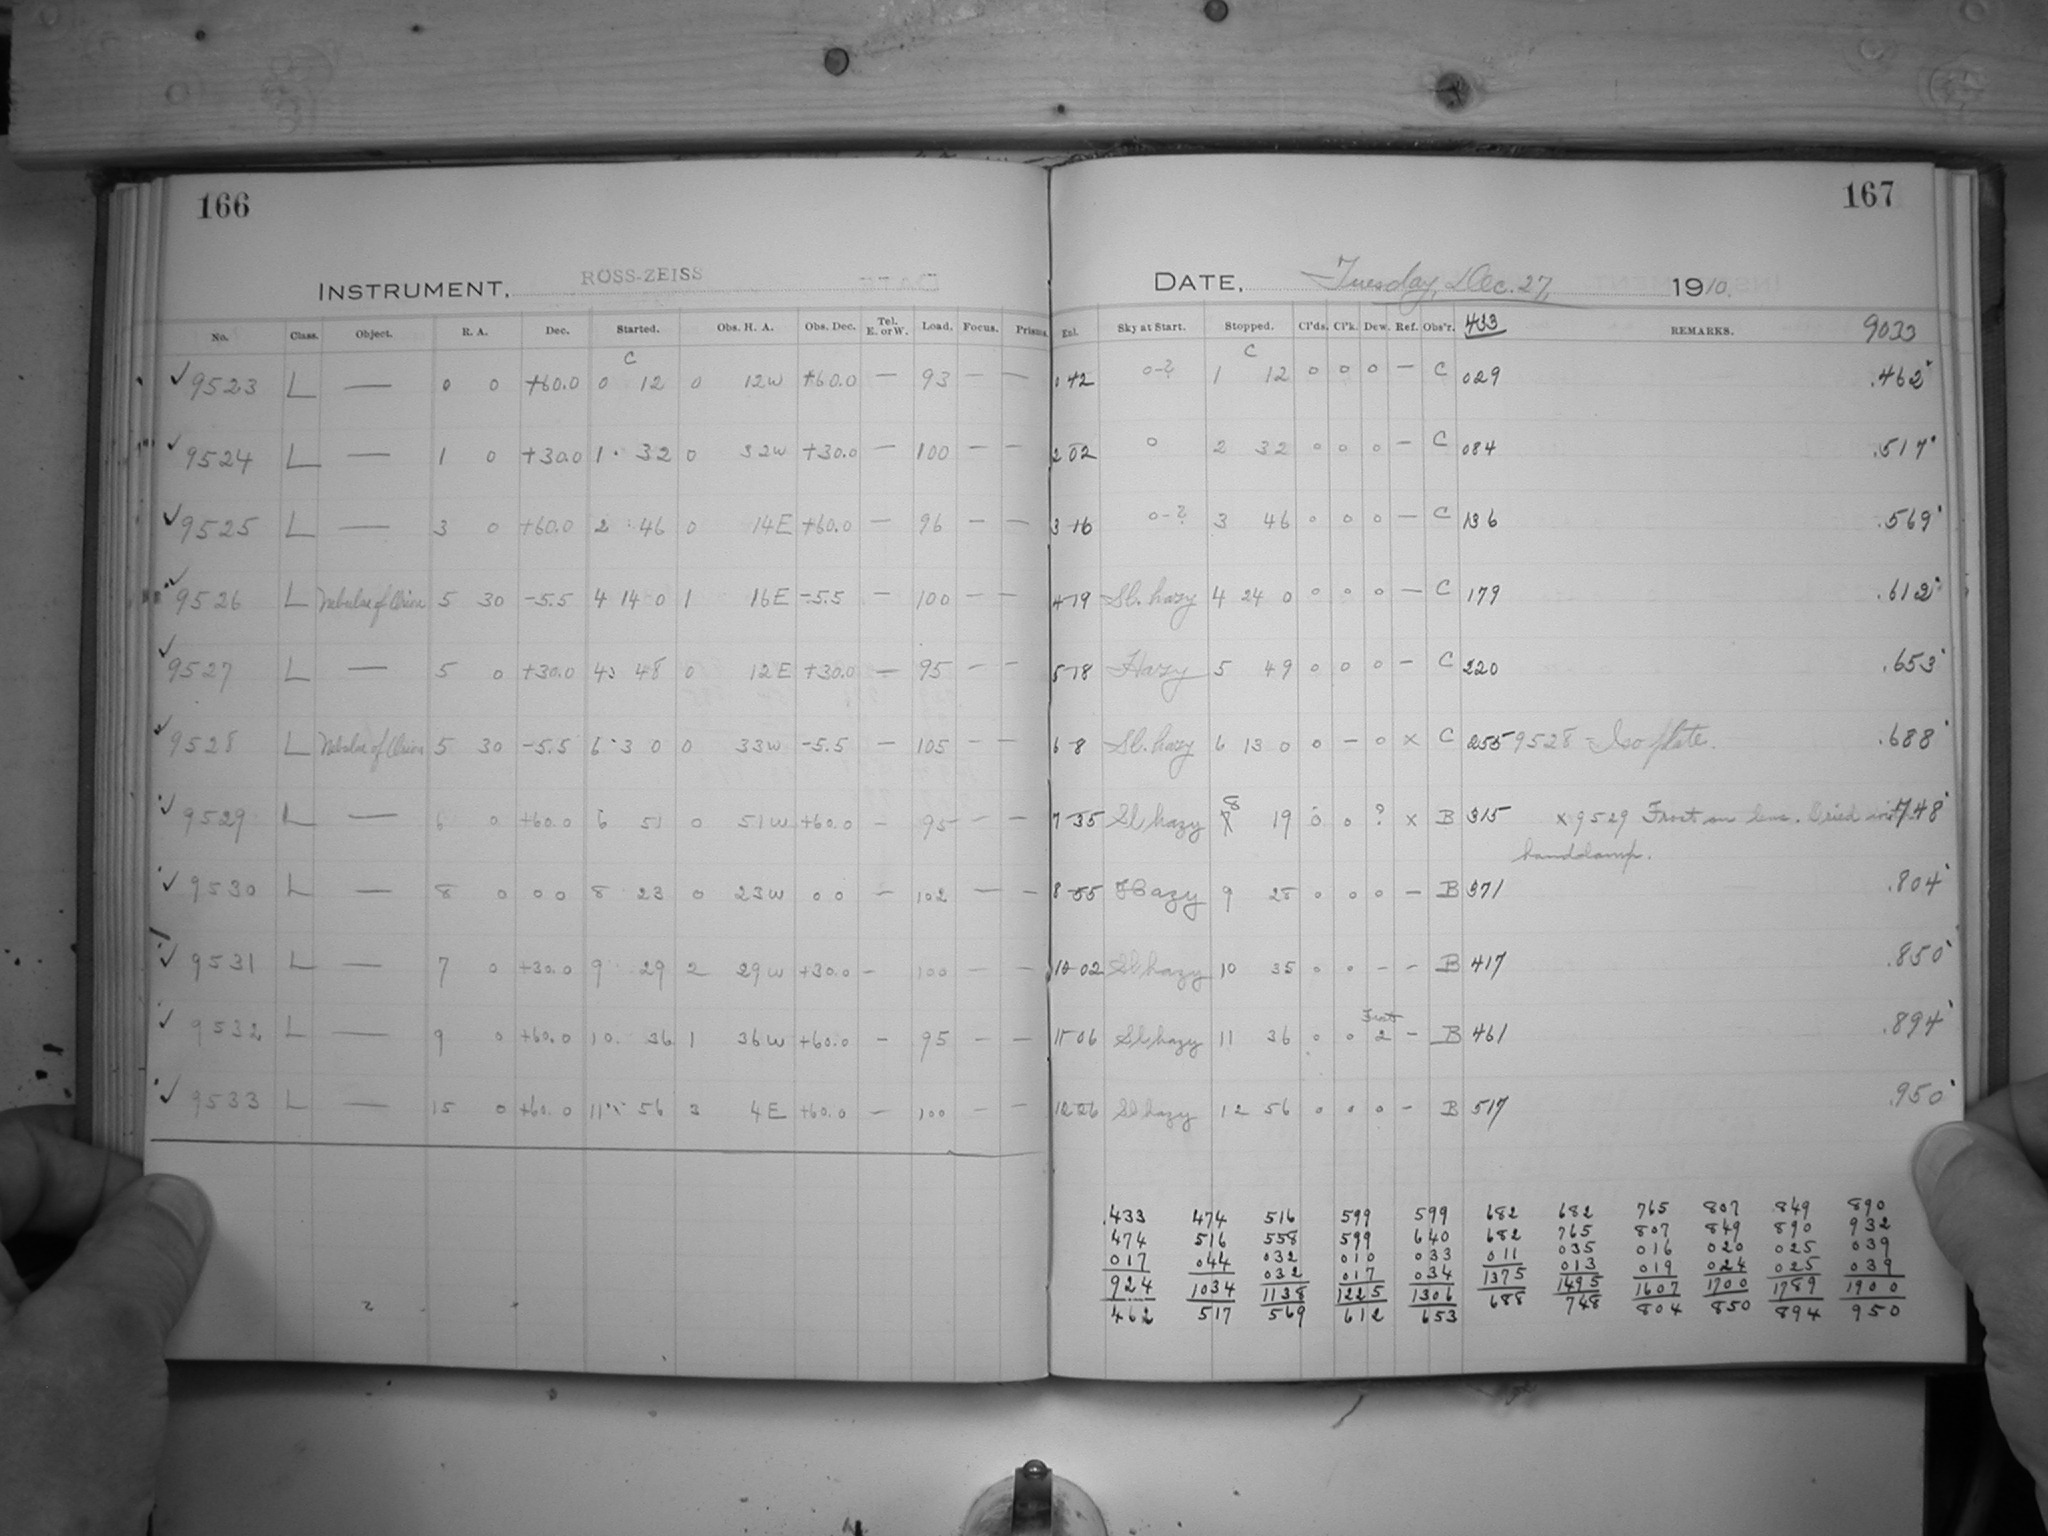 166
167
INSTRUMENT, ROSS-ZEISS
DATE, Tuesday, Dec. 27, 1910.
No. Class. Object. R. A. Dec. Started. Obs. H. A. Obs. Dec. Tel. E. or W. Load. Focus. Prisms. Enl. Sky at Start. Stopped. Cl'ds. Cl'k. Dew. Ref. Obs'r. 433 REMARKS. 9033
C C
✓ 9523 L — 0 0 +60.0 0 12 0 12W +60.0 — 93 — — 0 42 0-? 1 12 0 0 0 — C 029 .462
✓ 9524 L — 1 0 +30.0 1 32 0 32W +30.0 — 100 — — 2 02 0 2 32 0 0 0 — C 084 .517
✓ 9525 L — 3 0 +60.0 2 46 0 14E +60.0 — 96 — — 3 16 0-? 3 46 0 0 0 — C 136 .569
✓ 9526 L Nebulae of Orion 5 30 -5.5 4 14 0 1 16E -5.5 — 100 — — 4 19 Sl. hazy 4 24 0 0 0 0 — C 179 .612
✓ 9527 L — 5 0 +30.0 4 48 0 12E +30.0 — 95 — — 5 18 Hazy 5 49 0 0 0 — C 220 .653
✓ 9528 L Nebulae of Orion 5 30 -5.5 6 3 0 0 33W -5.5 — 105 — — 6 8 Sl. hazy 6 13 0 0 — 0 x C 255 9528 - Iso plate. .688
✓ 9529 L — 6 0 +60.0 6 51 0 51W +60.0 — 95 — — 7 35 Sl hazy 8 19 0 0 ? x B 315 x 9529 Frost on lens. Dried with .748
handlamp.
✓ 9530 L — 8 0 0 0 8 23 0 23W 0 0 — 102 — — 8 55 Hazy 9 28 0 0 0 — B 371 .804
✓ 9531 L — 7 0 +30.0 9 29 2 29W +30.0 — 100 — — 10 02 Sl hazy 10 35 0 0 — — B 417 .850
✓ 9532 L — 9 0 +60.0 10 36 1 36W +60.0 — 95 — — 11 06 Sl hazy 11 36 0 0 Frost 2 — B 461 .894
✓ 9533 L — 15 0 +60.0 11 56 3 4E +60.0 — 100 — — 12 26 Sl hazy 12 56 0 0 0 — B 517 .950
.433 474 516 599 599 682 682 765 807 849 890
474 516 558 599 640 682 765 807 849 890 932
017 044 032 010 033 011 035 016 020 025 039
032 017 034 013 019 024 025 039
924 1034 1138 1225 1306 1375 1495 1607 1700 1789 1900
462 517 569 612 653 688 748 804 850 894 950